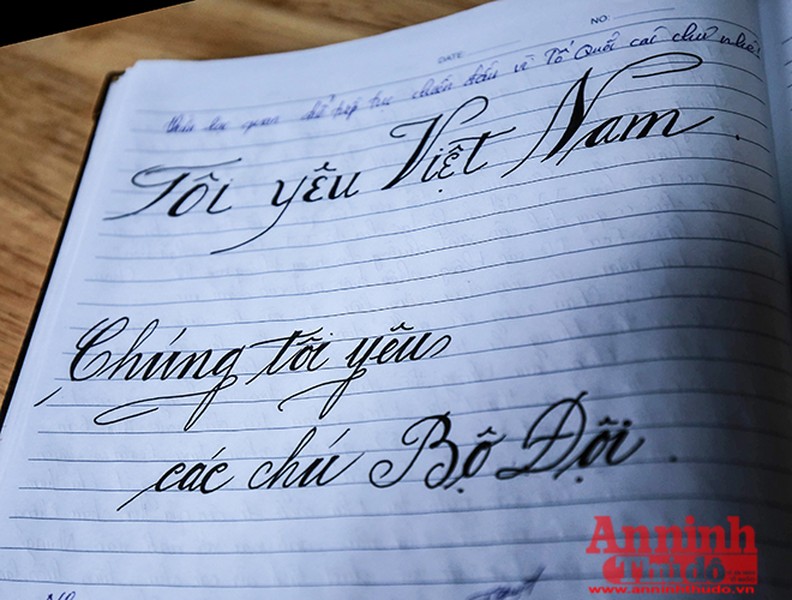 DATE: NO:
tiếp tục chiến đấu vì Tổ Quốc các chú nhé!
Tôi yêu Việt Nam.
Chúng tôi yêu
các chú Bộ Đội.
An ninh
Thủ đô
www.anninhthudo.vn